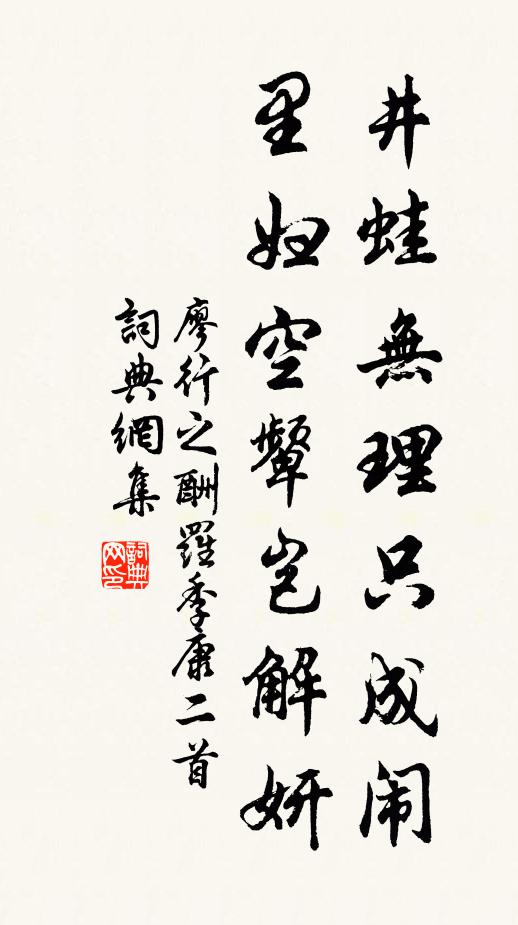 井蛙無理只成闹
里妇空颦岂解妍
廖行之酬羅季康二首
詞典網集
詞典网印